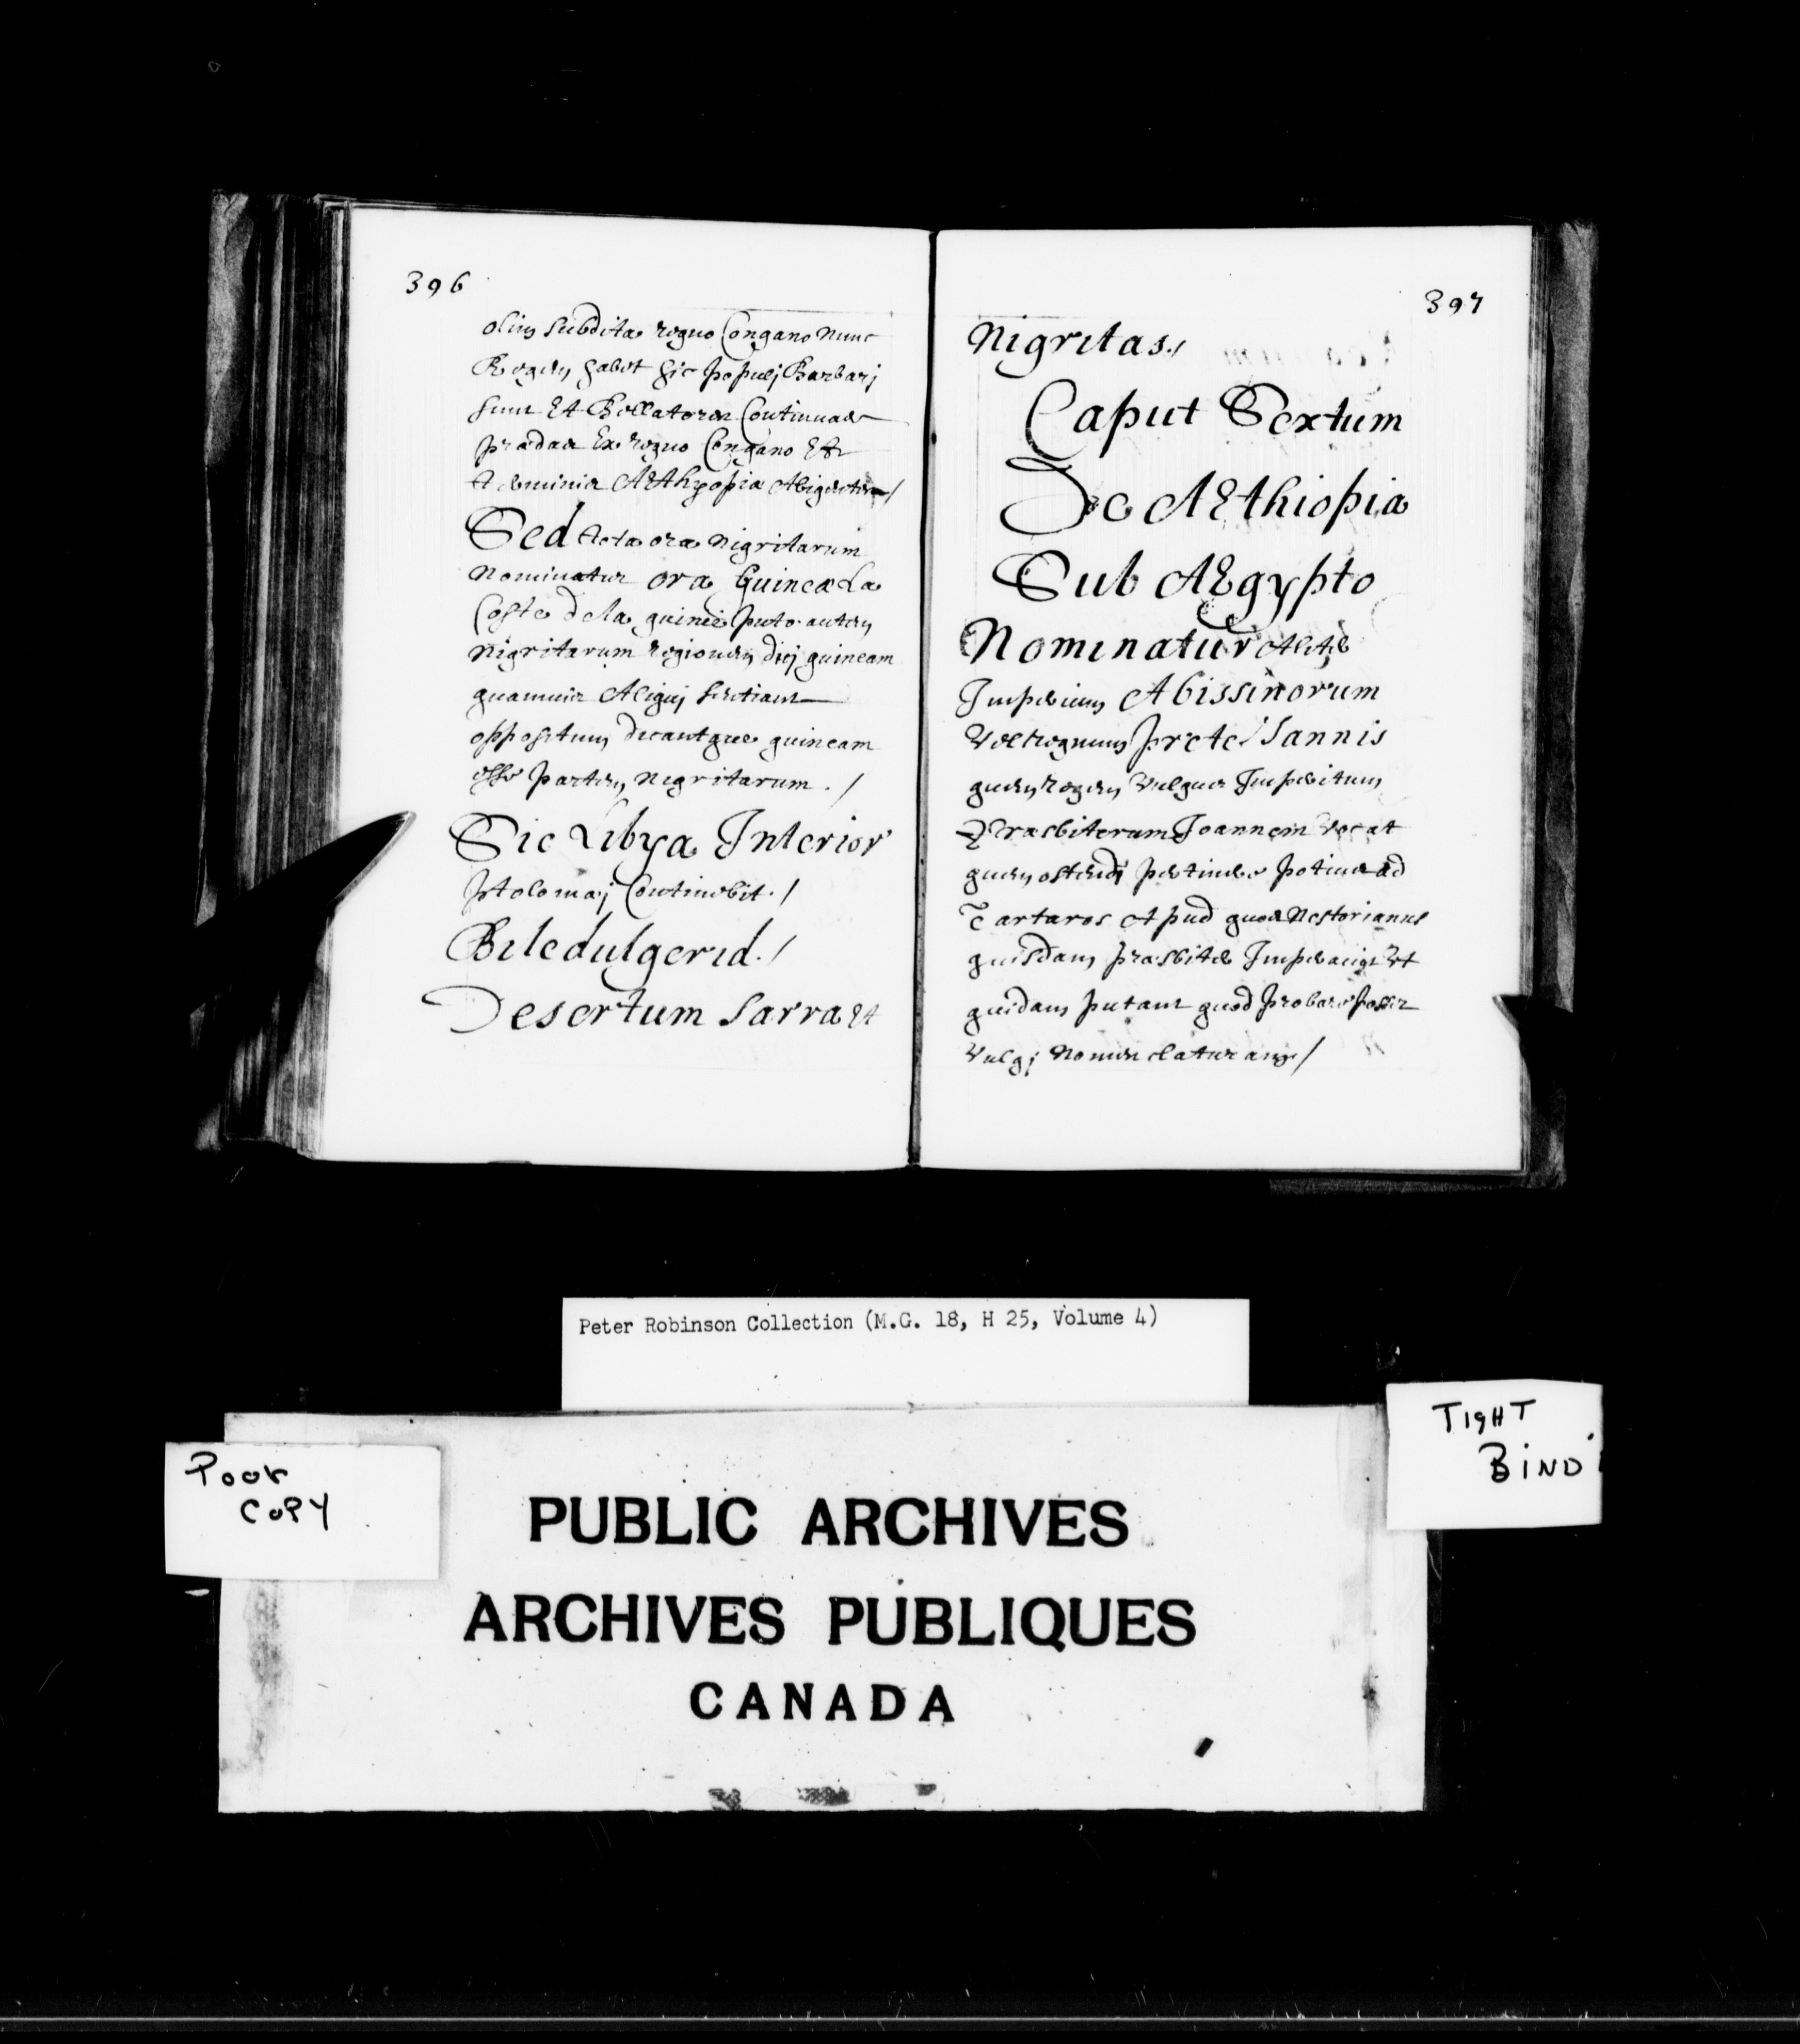 396
olim subdita regno Congano nunc
Regem habet hic populj Barbarj
sunt Et Bellatores Continuas
prædas Ex regno Congano Et
terminis AEthyopiæ Abigentes /
Sed tota ora nigritarum
nominatur ora Guineæ La
Coste de la guinée puto autem
nigritarum regionem dicj guineam
quamuis Aliquj sentiant
oppositum dicantque guineam
esse partem nigritarum. /
Sic Libya Interior
ptolomæj Continebit. /
Biledulgerid. /
Desertum Sarra Et
397
nigritas. /
Caput Sextum
De AEthiopia
Sub AEgypto
Nominatur Aliter
Imperium Abissinorum
Vel regnum prete Iannis
quem regem Vulgus Imperitum
Præsbiterum Joannem Vocat
quem ostendi pertinere potius ad
Tartaros Apud quos Nestorianus
quisdam præsbiter Imperauit Vt
quidam putant quod probare posset
Vulgj nomenclaturam /
Peter Robinson Collection (M.G. 18, H 25, Volume 4)
POOR
COPY
TIGHT
BIND
PUBLIC ARCHIVES
ARCHIVES PUBLIQUES
CANADA